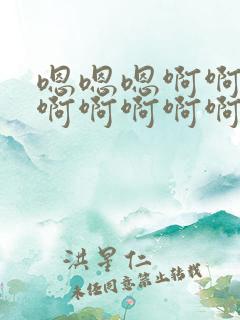 嗯嗯嗯啊啊
啊啊啊啊啊
洪星仁
未经同意禁止转载